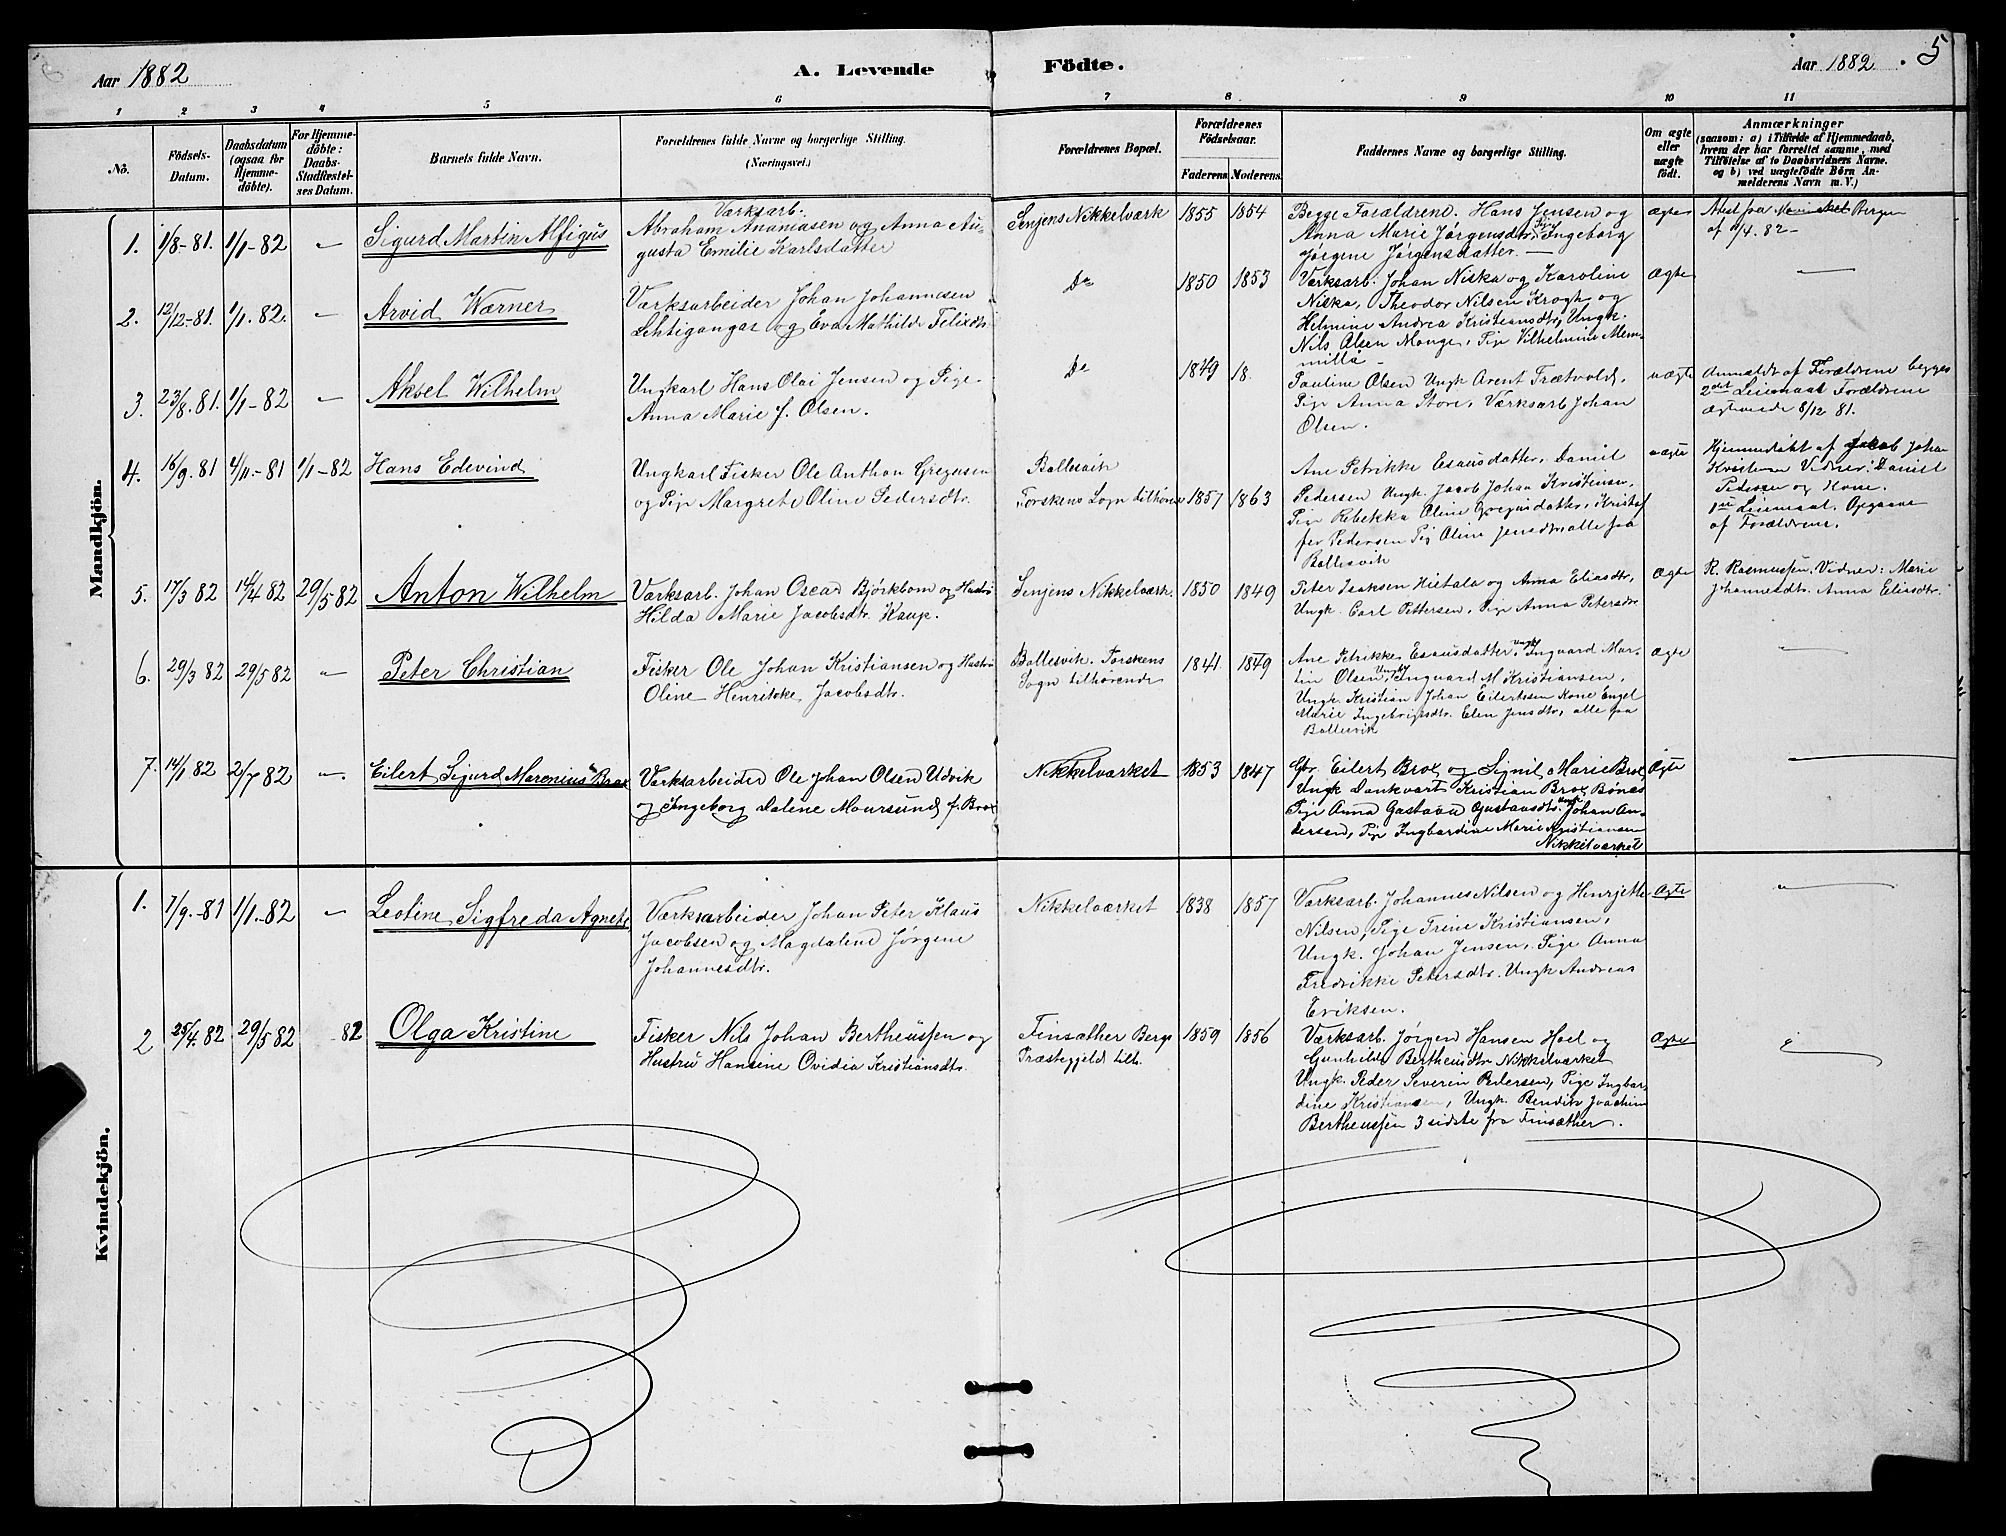 Aar 1882
A. Levende
Födte.
Aar 1882
5
1
2
3
4
5
6
7
8
9
10
11
No.
Födsels-
Datum.
Daabsdatum
(ogsaa for
Hjemme-
döbte).
For Hjemme-
döbte:
Daabs-
Stadfæstel-
ses Datum.
Barnets fulde Navn.
Forældrenes fulde Navne og borgerlige Stilling.
(Næringsvei.)
Forældrenes Bopæl.
Forældrenes
Födselsaar.
Faderens
Moderens
Faddernes Navne og borgerlige Stilling.
Om ægte
eller
uægte
födt.
Anmærkninger
(saasom: a) i Tilfælde af Hjemmedaab,
hvem der har forrettet samme, med
Tilföielse af to Daabsvidners Navne.
og b) ved uægtefödte Börn An-
melderens Navn m.V.)
Mandkjön.
1.
1/8-81.
1/1-82
—
Sigurd Martin Alfigus
Værksarb.
Abraham Ananiasen og Anna Au-
gusta Emilie Karlsdatter
Senjens Nikkelværk
1855
1854
Begge Forældrene. Hans Jensen og
Anna Marie Jørgensdtr, Pige Ingeborg
Jørgene Jørgensdatter. —
ægte
Attest fra Bergen
af 11/4. 82 —
2.
12/12-81.
1/1. 82.
—
Arvid Werner
Værksarbeider Johan Johannesen
Lehtigangas og Eva Mathilde Felixdtr
Do
1850
1853
Værksarb. Johan Niska og Karoline
Niska, Theodor Nilsen Krogh og
Helmine Andrea Kristiansdtr, Ungk.
Nils Olsen Monge, Pige Vilhelmine Mem-
millä —
Ægte
—
3.
23/8. 81.
1/1-82
—
Aksel Wilhelm
Ungkarl Hans Olai Jensen og Pige
Anna Marie f. Olsen.
Do
1849
18.
Pauline Olsen Ungk Arent Trætvold,
Pige Anna Store, Værksarb Johan
Olsen.
uægte
Anmeldt af Forældrene begges
2det Leiermaal Forældrene
Ægteviede 8/12 81.
4.
16/9. 81
4/11.-81
1/1-82
Hans Edevind
Ungkarl Fisker Ole Anthon Gregusen
og Pige Margrete Oline Pedersdtr.
Ballesvik
Torskens Sogn tilhørende
1857
1863
Ane Petrikke Esausdatter, Daniel
Pedersen Ungk. Jacob Johan Kristiansen,
Pige Rebekka Oline Gregusdatter, Kristof
fer Pedersen Pige Oline Jensdtr alle fra
Ballesvik
uægte
Hjemmedøbt af Jakob Johan
Kristiansen Vidner: Daniel
Pedersen og Kone.
1ste Leiermaal. Opgaaet
af Forældrene.
5.
17/3 82
14/4 82
29/5 82
Anton Wilhelm
Værksarb. Johan Oscar Bjørkbom og Hustru
Hilda Marie Jacobsdtr. Kaup.
Senjens Nikkelværk.
1850
1849
Peter Isaksen Hietala og Anna Eliasdtr,
Ungk. Carl Pettersen, Pige Anna Petersdtr
Ægte
R. Rasmussen. Vidner: Marie
Johannesdtr. Anna Eliasdtr.
6.
29/3 82
29/5 82
—
Peter Christian
Fisker Ole Johan Kristiansen og Hustru
Oline Henrikke Jacobsdtr.
Ballesvik. Torskens
Sogn tilhørende
1841.
1849
Ane Petrikke Esausdatter, Ungk Ingvard Mar-
tin Olsen, Ungk Ingvard M Kristiansen,
Ungk. Kristian Johan Eilertsen Kone Engel
Marie Ingebrigtsdtr. Elen Jensdtr, alle fra
Ballesvik
Ægte
—
7.
14/1 82
2/7 82
—
Eilert Sigurd Marenius Brox
Værksarbeider Ole Johan Olsen Udvik
og Ingeborg Dalene Moursund f. Brox
Nikkelværket
1853
1847
Gbr. Eilert Brox og Signil Marie Brox,
Ungk Dankvart Kristian Brox Bønes
Pige Anna Gustava Gustavsdtr. Ungk Johan An-
dersen, Pige Ingbardine Marie Kristiansen
Nikkelværket
Ægte
—
Kvindekjön.
1.
7/9.-81
1/1.-82
—
Leoline Sigfreda Agnete
Værksarbeider Johan Peter Klaus
Jacobsen og Magdalene Jørgene
Johannesdtr.
Nikkelværket
1838
1857
Værksarb. Johannes Nilsen og Henrjette
Nilsen, Pige Trine Kristiansen,
Ungk. Johan Jensen, Pige Anna
Fredrikke Petersdtr. Ungk Andreas
Eriksen.
Ægte
2
25/4. 82.
29/5 82
82
Olga Kristine
Fisker Nils Johan Bertheussen og
Hustru Hansine Ovidia Kristiansdtr.
Finsæther Bergs
Præstegjeld tilh.
1859
1856
Værksarb. Jørgen Hansen Hoel og
Gunhild Bertheusdtr Nikkelværket
Ungk. Peder Severin Pedersen, Pige Ingbar
dine Kristiansen, Ungk. Bendik Joachim
Bertheussen 3 sidste fra Finsæther.
Ægte